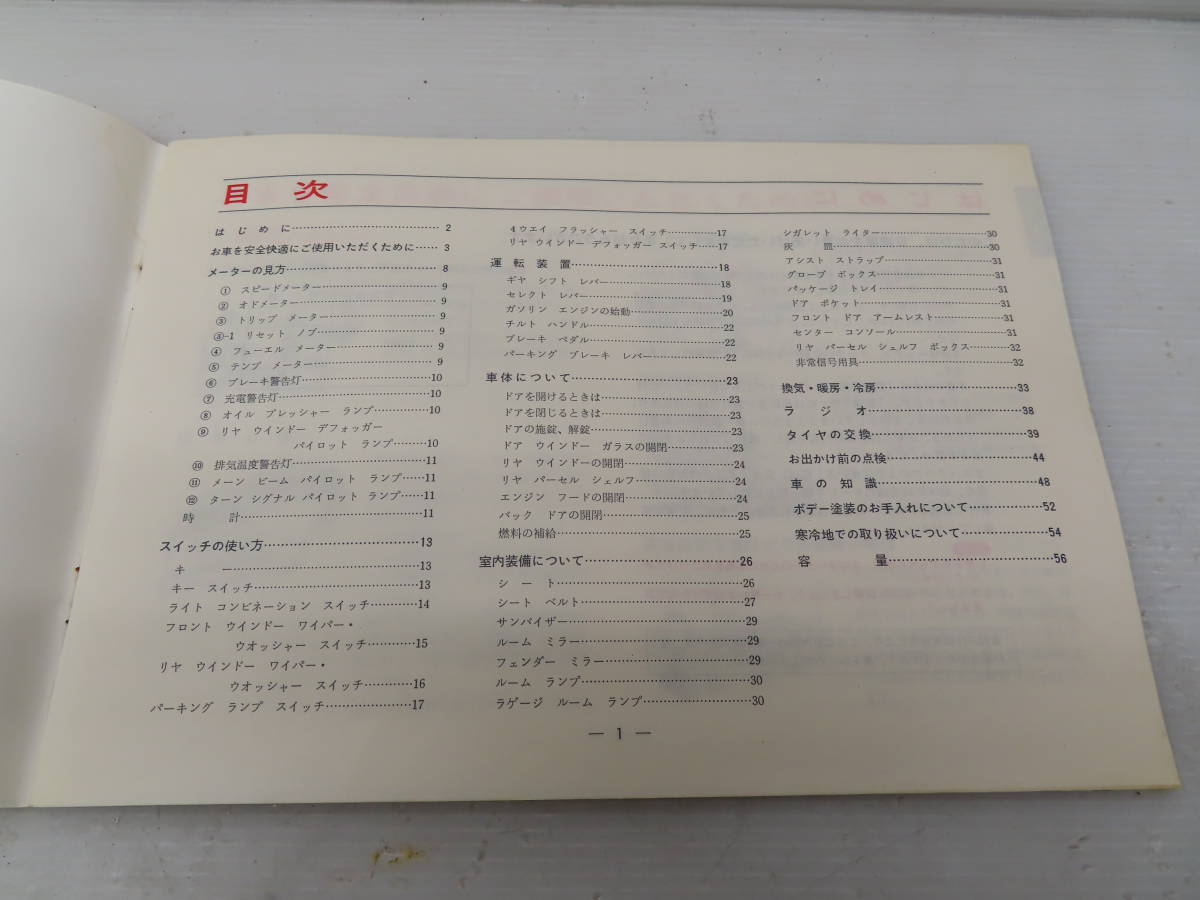 目次
はじめに…………………………2
お車を安全快適にご使用いただくために……3
メーターの見方…………………………8
① スピードメーター…………………9
② オドメーター…………………9
③ トリップ メーター…………………9
③-1 リセット ノブ…………………9
④ フューエル メーター…………………9
⑤ テンプ メーター…………………9
⑥ ブレーキ警告灯…………………10
⑦ 充電警告灯…………………10
⑧ オイル プレッシャー ランプ…………10
⑨ リヤ ウインドー デフォッガー
パイロット ランプ………10
⑩ 排気温度警告灯…………………11
⑪ メーン ビーム パイロット ランプ……11
⑫ ターン シグナル パイロット ランプ……11
時計…………………………11
スイッチの使い方…………………………13
キー…………………………13
キー スイッチ…………………………13
ライト コンビネーション スイッチ…………14
フロント ウインドー ワイパー・
ウオッシャー スイッチ…………15
リヤ ウインドー ワイパー・
ウオッシャー スイッチ…………16
パーキング ランプ スイッチ…………………17
4ウエイ フラッシャー スイッチ…………17
リヤ ウインドー デフォッガー スイッチ……17
運転装置…………………………18
ギヤ シフト レバー…………………18
セレクト レバー…………………19
ガソリン エンジンの始動…………………20
チルト ハンドル…………………22
ブレーキ ペダル…………………22
パーキング ブレーキ レバー…………………22
車体について…………………………23
ドアを開けるときは…………………23
ドアを閉じるときは…………………23
ドアの施錠、解錠…………………23
ドア ウインドー ガラスの開閉…………23
リヤ ウインドーの開閉…………………24
リヤ パーセル シェルフ…………………24
エンジン フードの開閉…………………24
バック ドアの開閉…………………25
燃料の補給…………………25
室内装備について…………………………26
シート…………………………26
シート ベルト…………………27
サンバイザー…………………29
ルーム ミラー…………………29
フェンダー ミラー…………………29
ルーム ランプ…………………30
ラゲージ ルーム ランプ…………………30
シガレット ライター…………………30
灰皿…………………30
アシスト ストラップ…………………31
グローブ ボックス…………………31
パッケージ トレイ…………………31
ドア ポケット…………………31
フロント ドア アームレスト…………………31
センター コンソール…………………31
リヤ パーセル シェルフ ボックス…………32
非常信号用具…………………32
換気・暖房・冷房…………………………33
ラジオ…………………………38
タイヤの交換…………………………39
お出かけ前の点検…………………………44
車の知識…………………………48
ボデー塗装のお手入れについて…………………52
寒冷地での取り扱いについて…………………54
容量…………………………56
― 1 ―